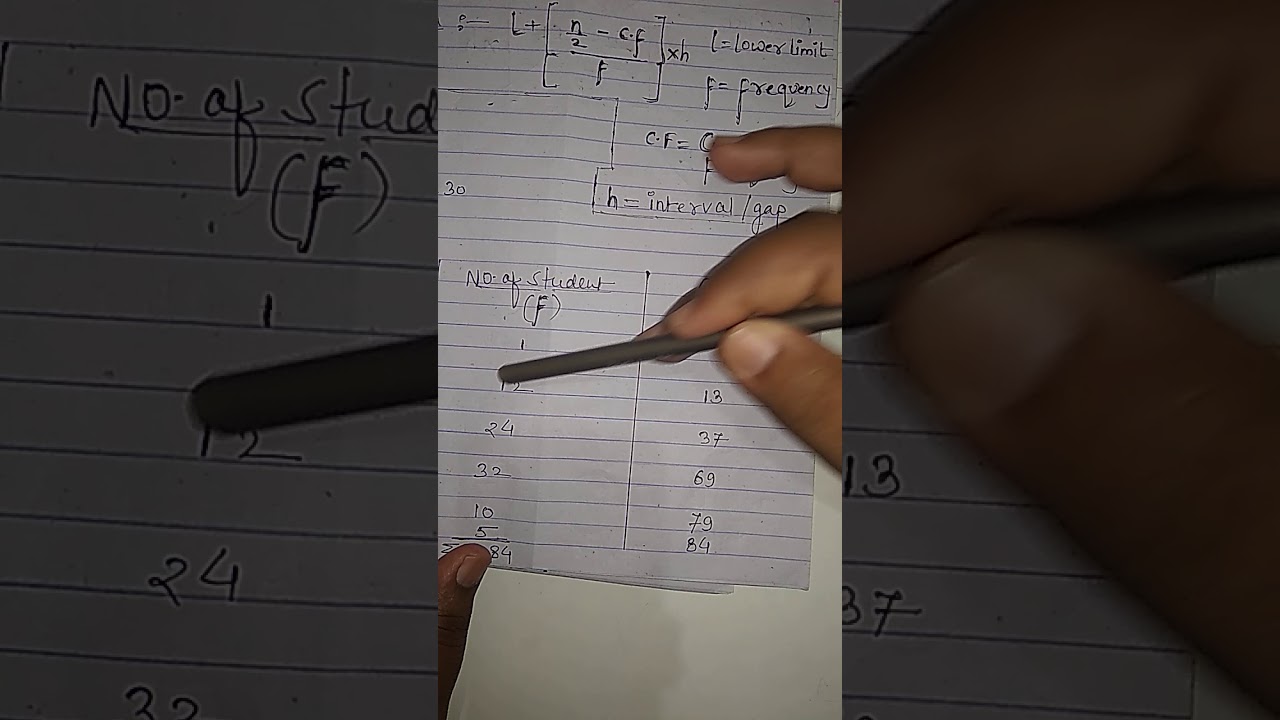 :- L+[n/2 - C.f / F]×h l=lower limit
F= Frequency
C.F=
h = interval/gap
30
NO. of Student
(F)
1
12 13
24 37
32 69
10 79
5 84
84